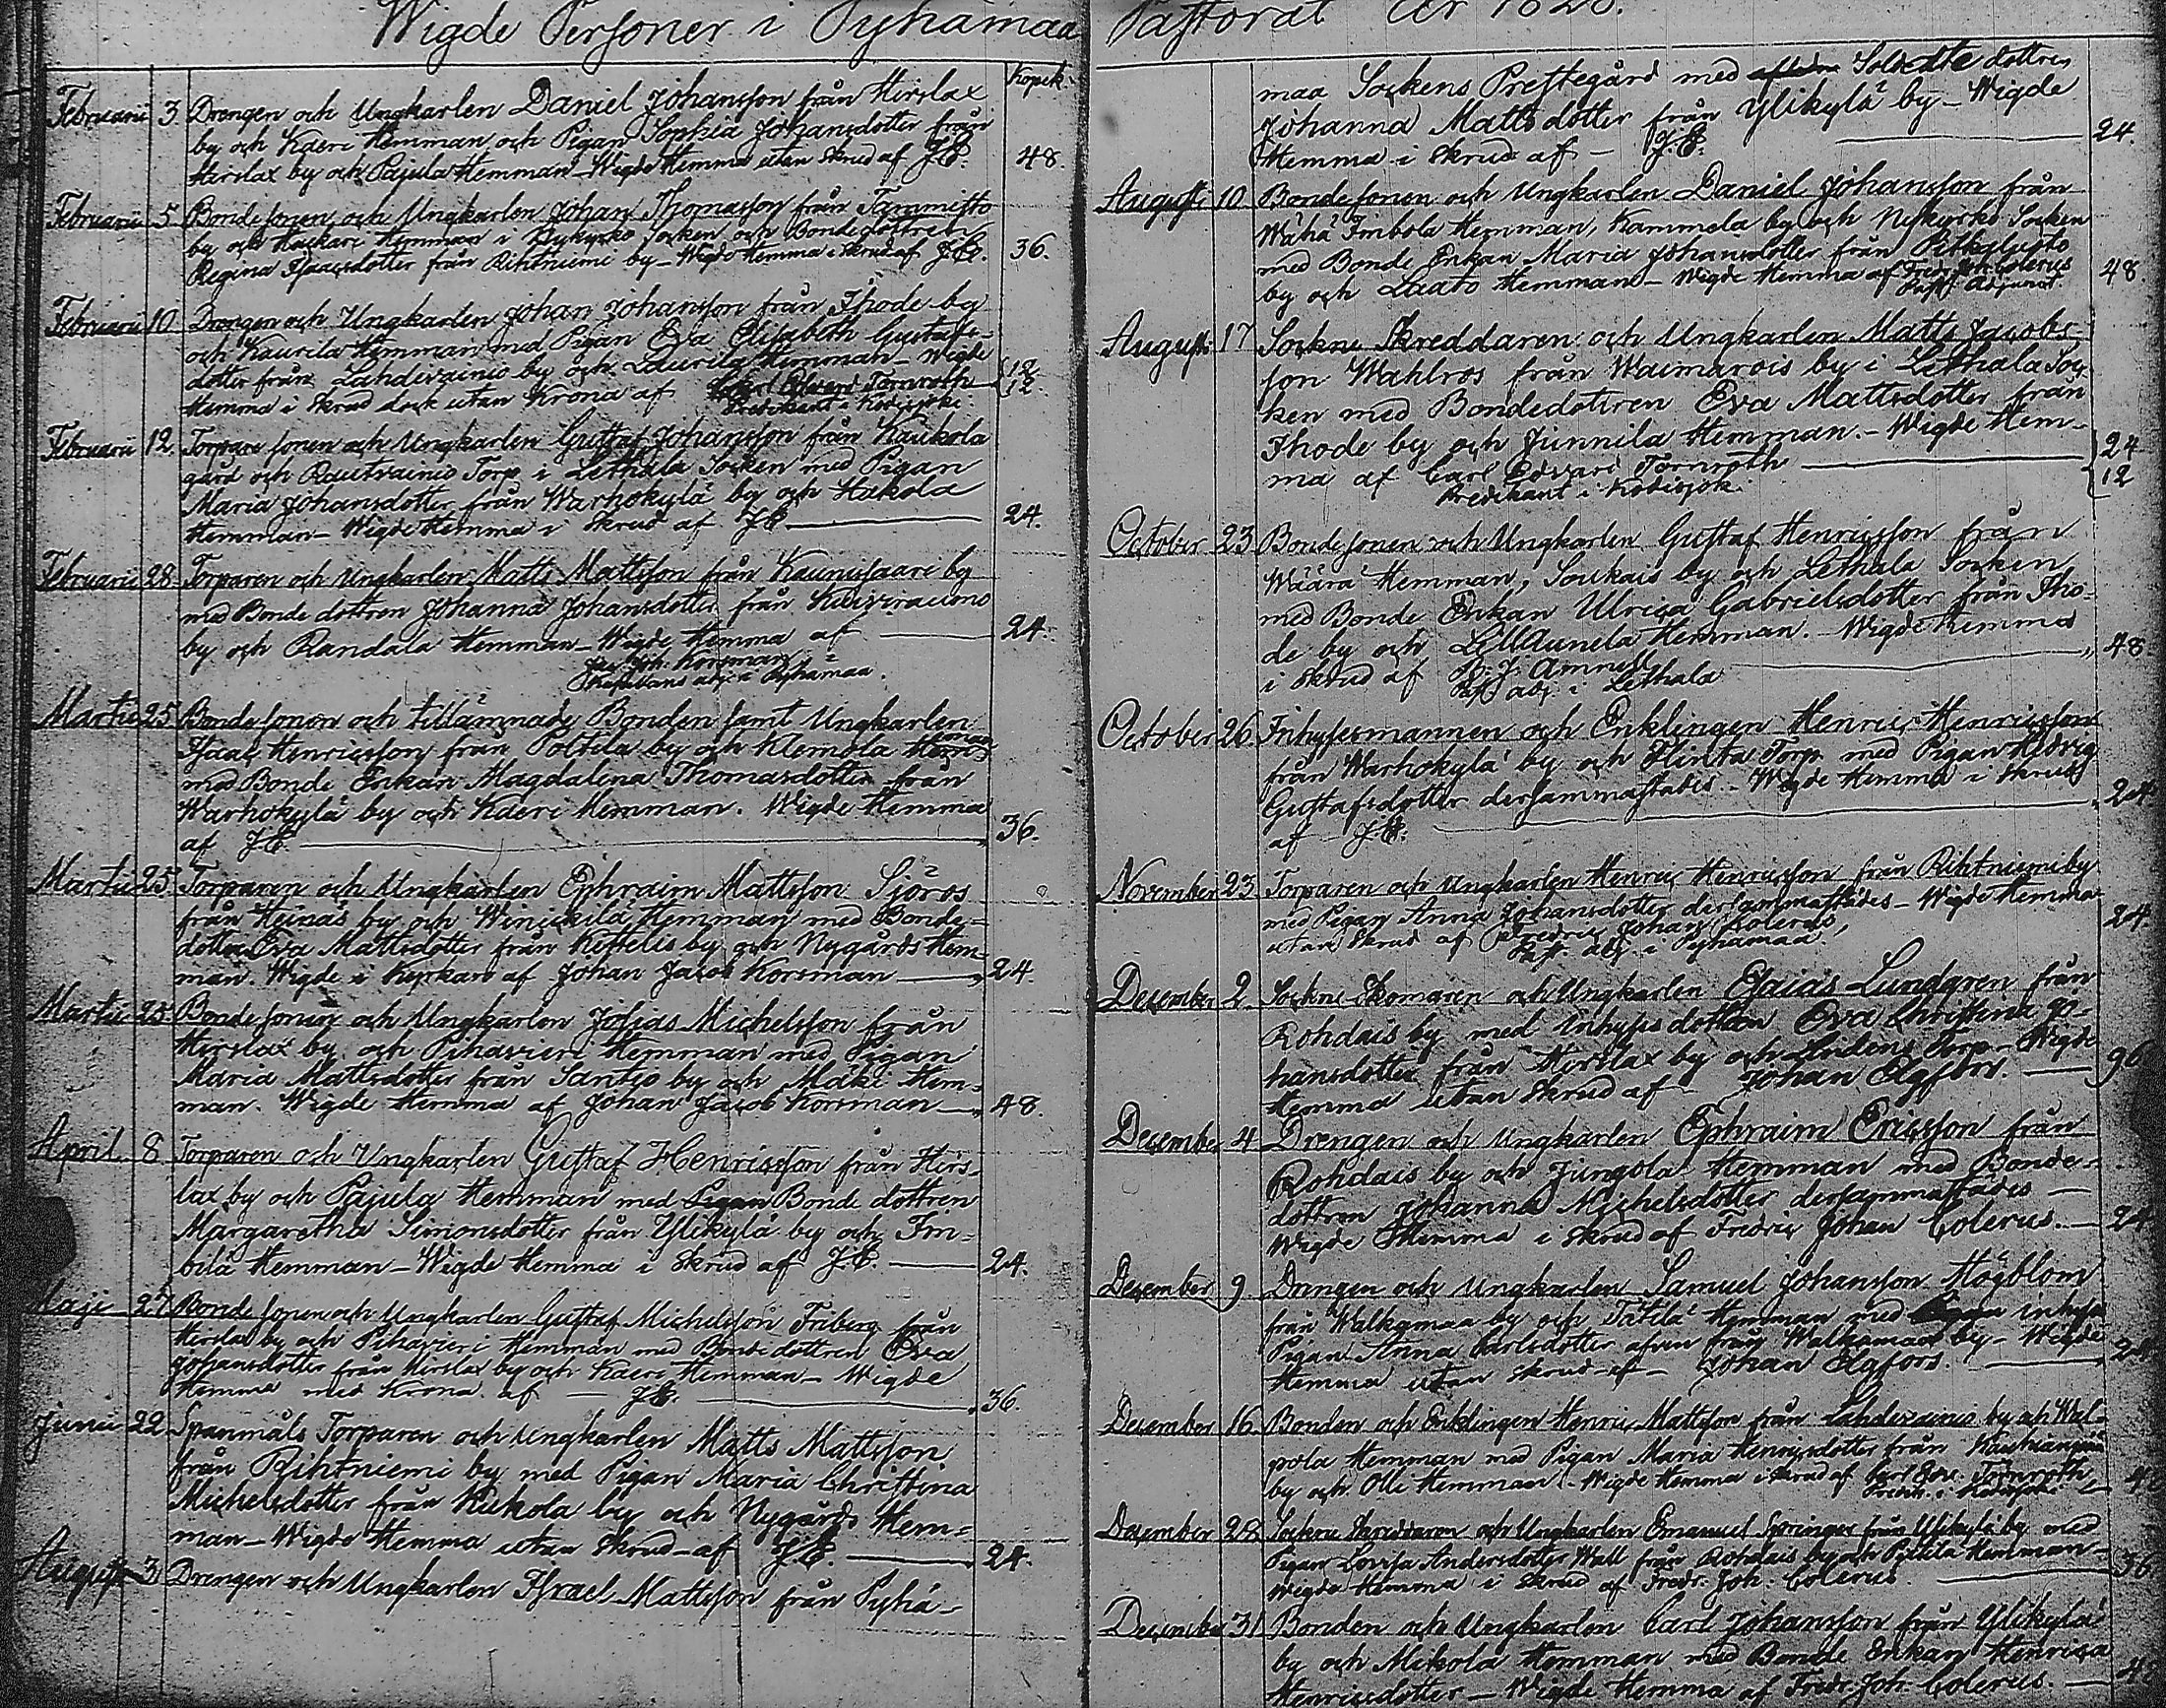 Wigde Personer i Pyhämaa Pastorat År 1828.
Kopek.
Februarii 3 Drengen och Ungkarlen Daniel Johansson från Hirslax
by och Kaeri Hemman och Pigan Sophia Johansdotter från
Hirslax by och Pajula Hemman – Wigde Hemma utan skrud af J.E. 48.
Februarii 5 Bondesonen och Ungkarlen Johan Thomasson från Tammisto
by och Hemman i Nykyrko Socken och Bondedottren
Regina Isaacsdotter från Rihtniemi by – Wigde Hemma i Skrud af J.E. 36.
Februarii 10 Drengen och Ungkarlen Johan Johansson från Ihode by
och Kaurila Hemman med Pigan Eva Elisabeth Gustafs-
dotter från Lahdivainio by och Laurila Hemman – Wigde 12
Hemma i Skrud dock utan Krona af Carl Edvard Tornroth 12.
Predikant i Kodisjoki.
Februarii 12. Torpare sonen och Ungkarlen Gustaf Johansson från Kaukola
gård och Rautvainio Torp i Lethala Socken med Pigan
Maria Johansdotter från Warhokylä by och Hakola
Hemman – Wigde Hemma i Skrud af J.E. 24.
Februarii 28 Torparen och Ungkarlen Matts Mattsson från Kaunissaari by
med Bonde dottren Johanna Johansdotter från
by och Randala Hemman – Wigde Hemma af 24.
Joh. Korsman
adj. i Pyhämaa.
Martii 25 Bonde sonen och tillämnade Bonden samt Ungkarlen
Isaac Henricsson från Poltila by och Klemola Hemman
med Bonde Enkan Magdalena Thomasdotter från
Warhokylä by och Kaeri Hemman. Wigde Hemma
af J.E. 36.
Martii 25. Torparen och Ungkarlen Ephraim Mattsson Sjöros
från Heinäis by och Winickilä Hemman med Bonde-
dottren Eva Mattsdotter från Kettelis by och Nygårds Hem-
man. Wigde i Kyrkan af Johan Jacob Korsman 24.
Martii 25 Bonde sonen och Ungkarlen Josias Michelsson från
Hirslax by och Pihavieri Hemman med Pigan
Maria Mattsdotter från Santio by och Mäki Hem-
man. Wigde Hemma af Johan Jacob Korsman 48.
April 8 Torparen och Ungkarlen Gustaf Henricsson från Hirs-
lax by och Pajula Hemman med Pigan Bonde dottren
Margaretha Simonsdotter från Ylikylä by och Im-
bilä Hemman – Wigde Hemma i Skrud af J.E. 24.
Maji 27 Bonde sonen och Ungkarlen Gustaf Michelsson Friberg från
Hirslax by och Pihavieri Hemman med Bonde dottren Eva
Johansdotter från Hirslax by och Kaeri Hemman – Wigde
Hemma med Krona af – J.E. 36
Junii 22 Spanmåls Torparen och Ungkarlen Matts Mattsson
från Rihtniemi by med Pigan Maria Christina
Michelsdotter från Kukola by och Nygårds Hem-
man – Wigde Hemma utan Skrud – af J.E. 24.
Augusti 3 Drengen och Ungkarlen Israel Mattsson från Pyhä-
maa Sockens Prestegård med Soldatte dottren
Johanna Mattsdotter från Ylikylä by – Wigde
Hemma i skrud af – J.E. 24.
Augusti 10 Bondesonen och Ungkarlen Daniel Johansson från
Wähä Imbola Hemman, Kammela by och Nykyrko Socken
med Bonde Enkan Maria Johansdotter från
by och Laato Hemman – Wigde Hemma af Fredr. Joh. Colerus 48
Past. Adjunct.
Augusti 17 Sockne Skreddaren och Ungkarlen Matts Jacobs-
son Wahlros från Waimarois by i Lethala Soc-
ken med Bondedottren Eva Mattsdotter från
Ihode by och Junnila Hemman. – Wigde Hem- 24
ma af Carl Edvard Tornroth 12
Predikant i Kodisjok.
October 23 Bonde sonen och Ungkarlen Gustaf Henricsson från
Wäärä Hemman, Soukais by och Lethala Socken
med Bonde Enkan Ulrica Gabrielsdotter från Iho-
de by och Hemman. – Wigde hemma
i Skrud af B. J. Amnell 48
Past. adj. i Lethala
October 26 Inhysesmannen och Enklingen Henric Henricsson
från Warhokylä by och Hinta Torp med Pigan Hedvig
Gustafsdotter dersammastädes. – Wigde Hemma i skrud
af J.E. 24
November 23 Torparen och Ungkarlen Henric Henricsson från Rihtniemi by
med Pigan Anna Johansdotter dersammastädes – Wigde Hemma
utan Skrud af Fredric Johan Colerus, 24.
Past. adj. i Pyhämaa.
December 2. Sockne Skomaren och Ungkarlen Esaias Lundgren från
Rohdais by med Inhyses dottren Eva Christina Jo-
hansdotter från Hirslax by och Lindens Torp – Wigde
Hemma utan Skrud af – Johan Elgfors. 96
December 4 Drengen och Ungkarlen Ephraim Ericsson från
Rohdais by och Jungola Hemman med Bonde-
dottren Johanna Michelsdotter dersammastädes –
Wigde Hemma i Skrud af Fredric Johan Colerus. 24
December 9 Drengen och Ungkarlen Samuel Johansson Högblom
från Walkamaa by och Tätilä Hemman med inhyses
Pigan Anna Carlsdotter äfven från Walkamaa by – Wigde
Hemma utan Skrud af – Johan Elgfors. 24
December 16 Bonden och Enklingen Henric Mattsson från Lahdivainio by och Wal-
pola Hemman med Pigan Maria Henricsdotter från
by och Olli Hemman. – Wigde Hemma i skrud af Carl Edv. Tornroth 48
Predik. i Kodisjoki
December 28 Sockne Skreddaren och Ungkarlen Emanuel Springer från Ylikylä by med
Pigan Lovisa Andersdotter Wall från Rohdais by och Pittila Hemman –
Wigde Hemma i Skrud af Fredr. Joh. Colerus. 36
December 31 Bonden och Ungkarlen Carl Johansson från Ylikylä
by och Mikola Hemman med Bonde Enkan Henrica
Henricsdotter – Wigde Hemma af Fredr. Joh. Colerus. – 48